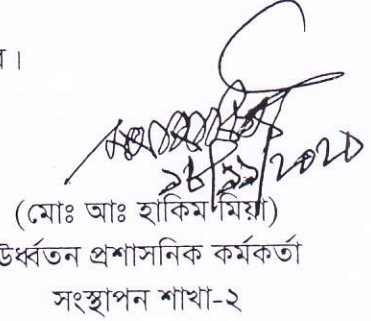 ।
১৮/১১/২০২০
(মোঃ আঃ হাকিম মিয়া)
উর্ধ্বতন প্রশাসনিক কর্মকর্তা
সংস্থাপন শাখা-২